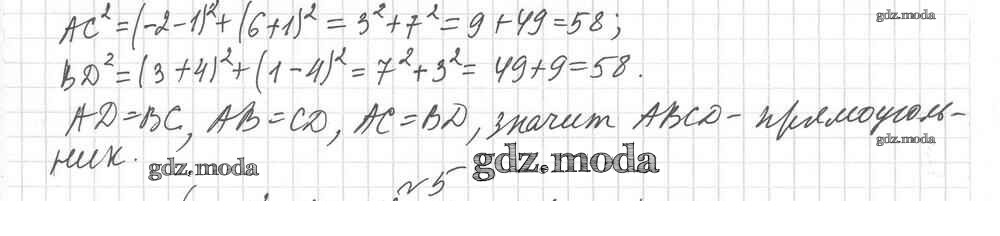 AC² = (-2-1)² + (6+1)² = 3² + 7² = 9 + 49 = 58;
gdz.moda
BD² = (3+4)² + (1-4)² = 7² + 3² = 49 + 9 = 58.
AD = BC, AB = CD, AC = BD, значит ABCD - прямоуголь-
gdz.moda
ник.
gdz.moda
gdz.moda
№5